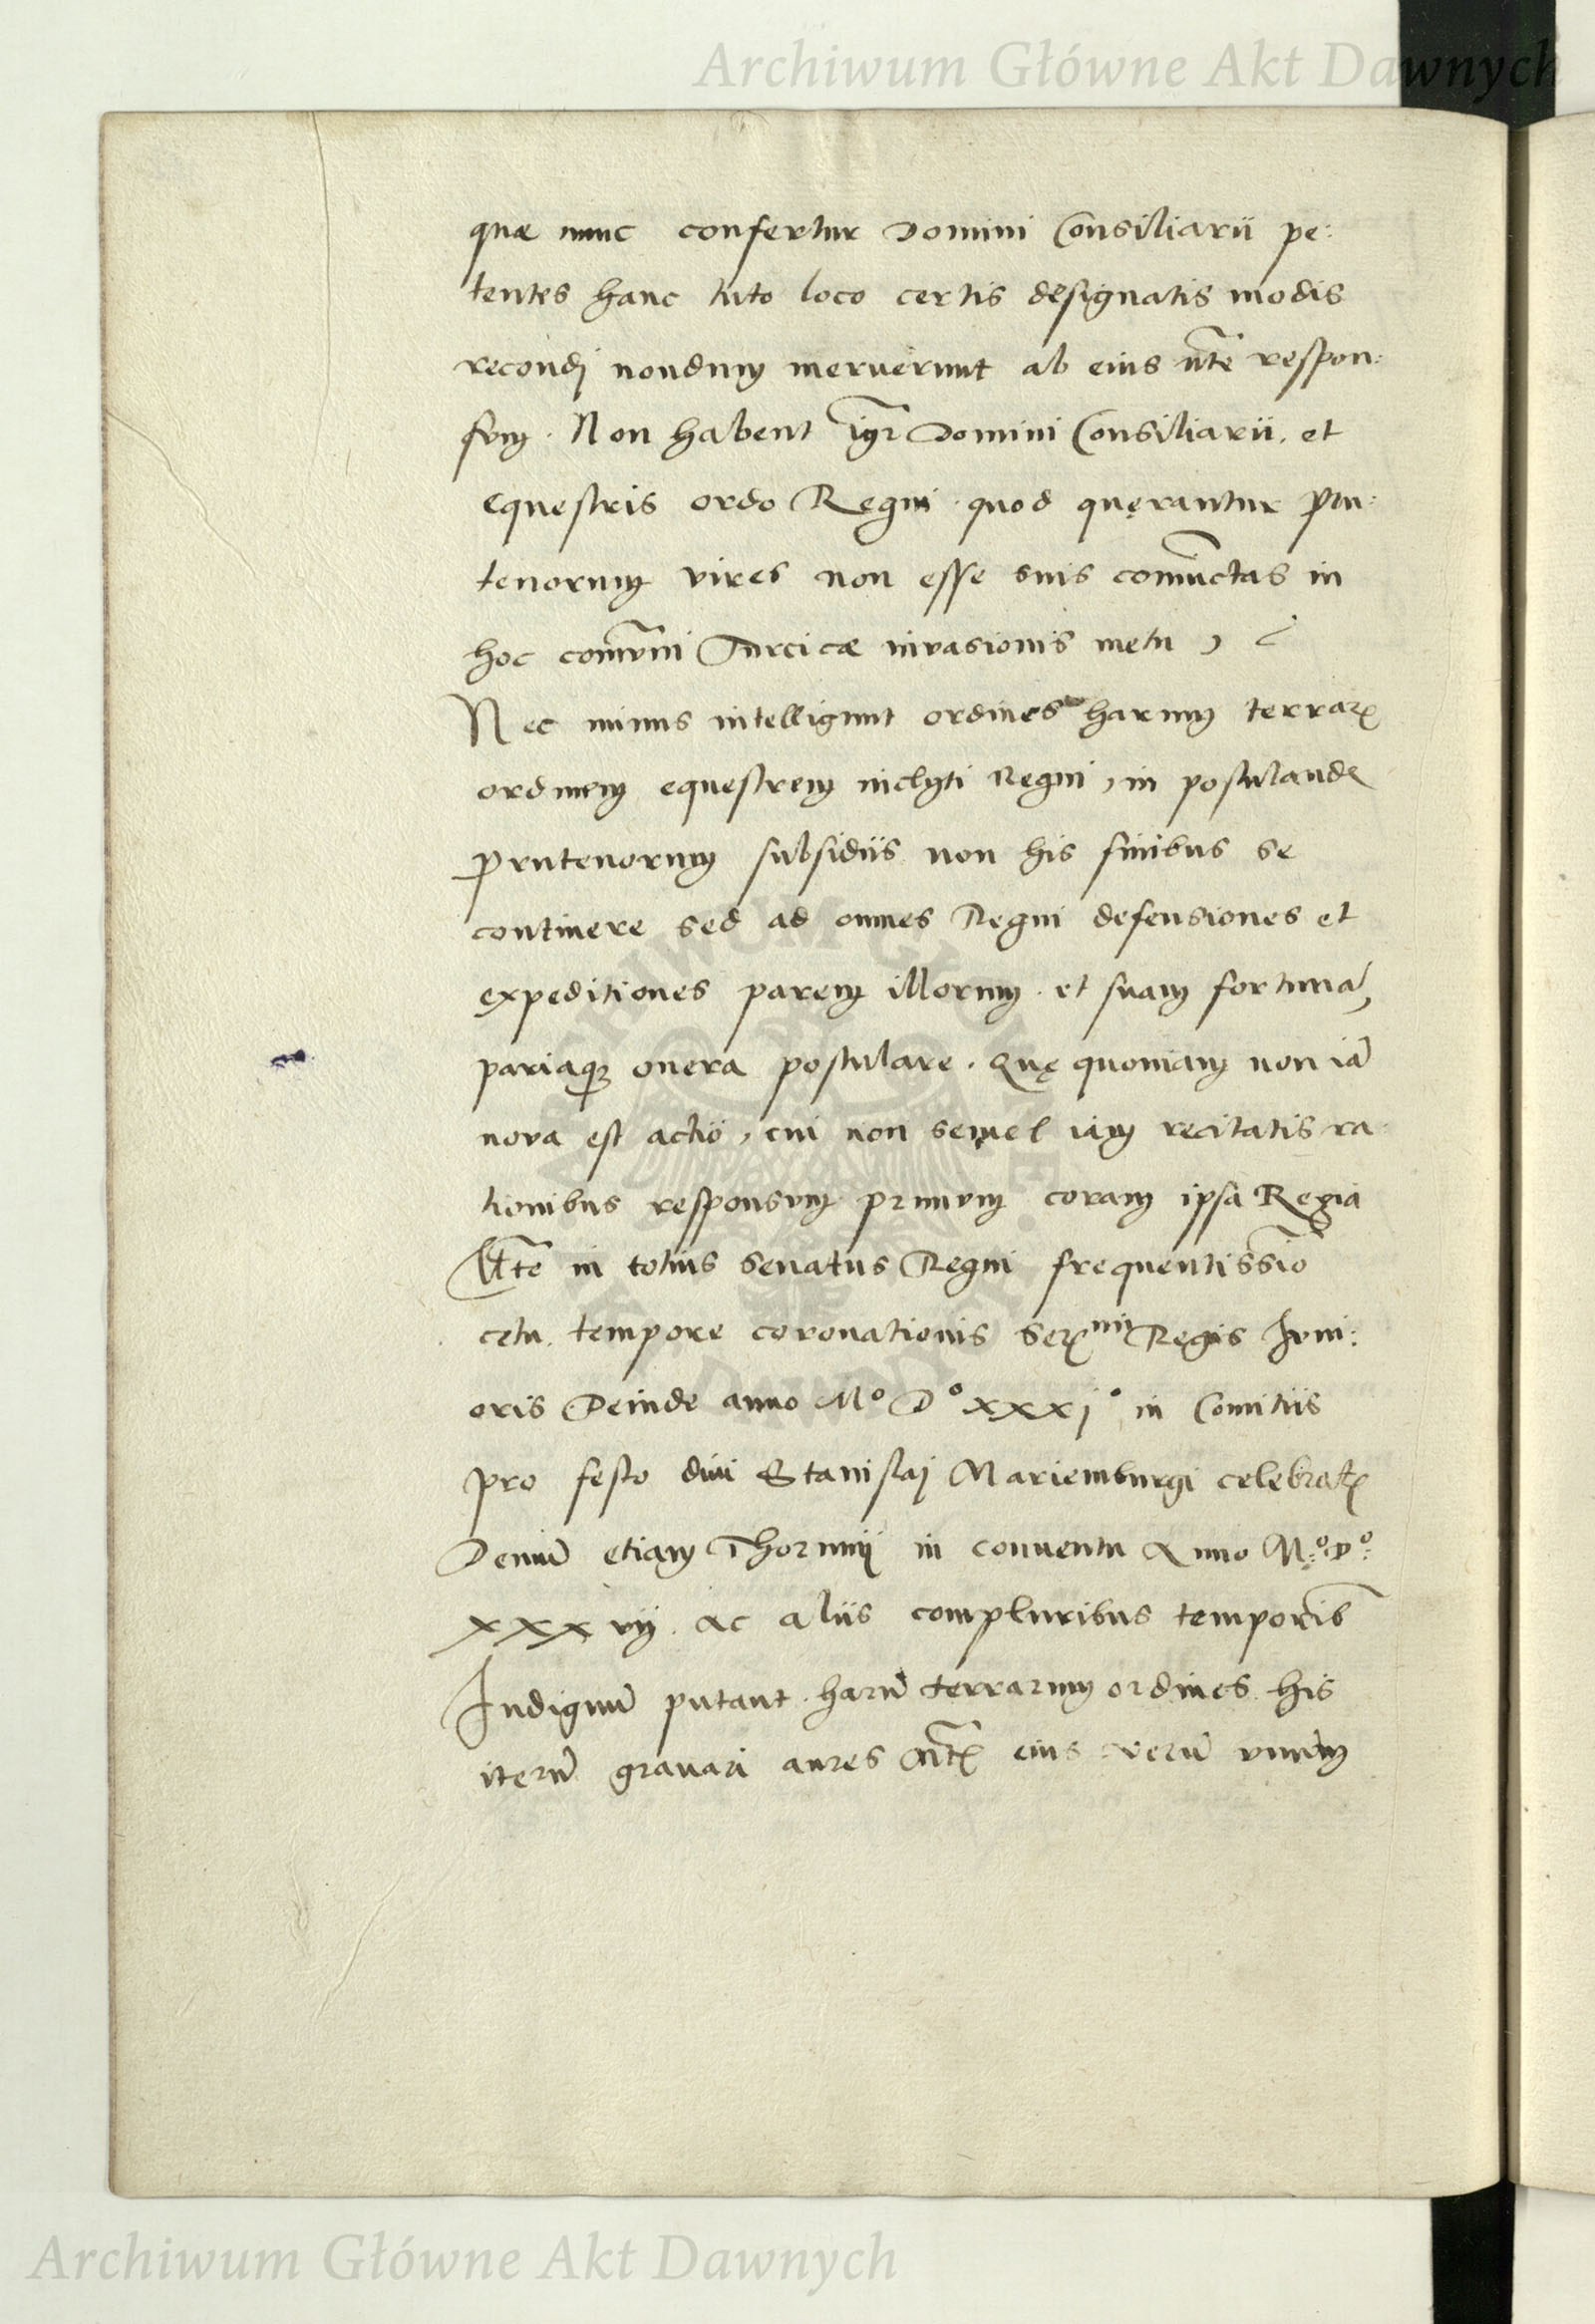 Archiwum Główne Akt Dawnych
quæ nunc confertur Domini Consiliarii pe:
tentes hanc tuto loco certis designatis modis
recondj nondum meruerunt ab eius Mte respon:
sum. Non habent igr Domini Consiliarii. et
equestris ordo Regni. quod quęrantur Pru:
tenorum vires non esse suis coniunctas in
hoc comuni Turcicæ invasionis metu,
Nec minus intelligunt ordines harum terrarū
ordinem equestrem inclyti Regni, in postulandis
Prutenorum subsidiis non his finibus se
continere sed ad omnes Regni defensiones et
expeditiones parem illorum. et suam fortunā,
pariaque onera postulare. Quę quoniam non iā
nova est actio, cui non semel iam recitatis ra
tionibus responsum primum coram ipsa Regia
Mte in totius senatus Regni frequentissīo
cętu. tempore coronationis Serᵐⁱ Regis Iuni:
oris Deinde anno Mº Dº xxxjº in Comitiis
pro festo divi Stanislaj Mariemburgi celebratis
Demū etiam Thorunij in conventu Anno M:º D:º
xxxvij. ac aliis compluribus temporib
Indignū putant. harū terrarum ordines his
iterū gravari aures Mtis eius verū unum
ARCHIWUM GŁÓWNE AKT DAWNYCH
Archiwum Główne Akt Dawnych